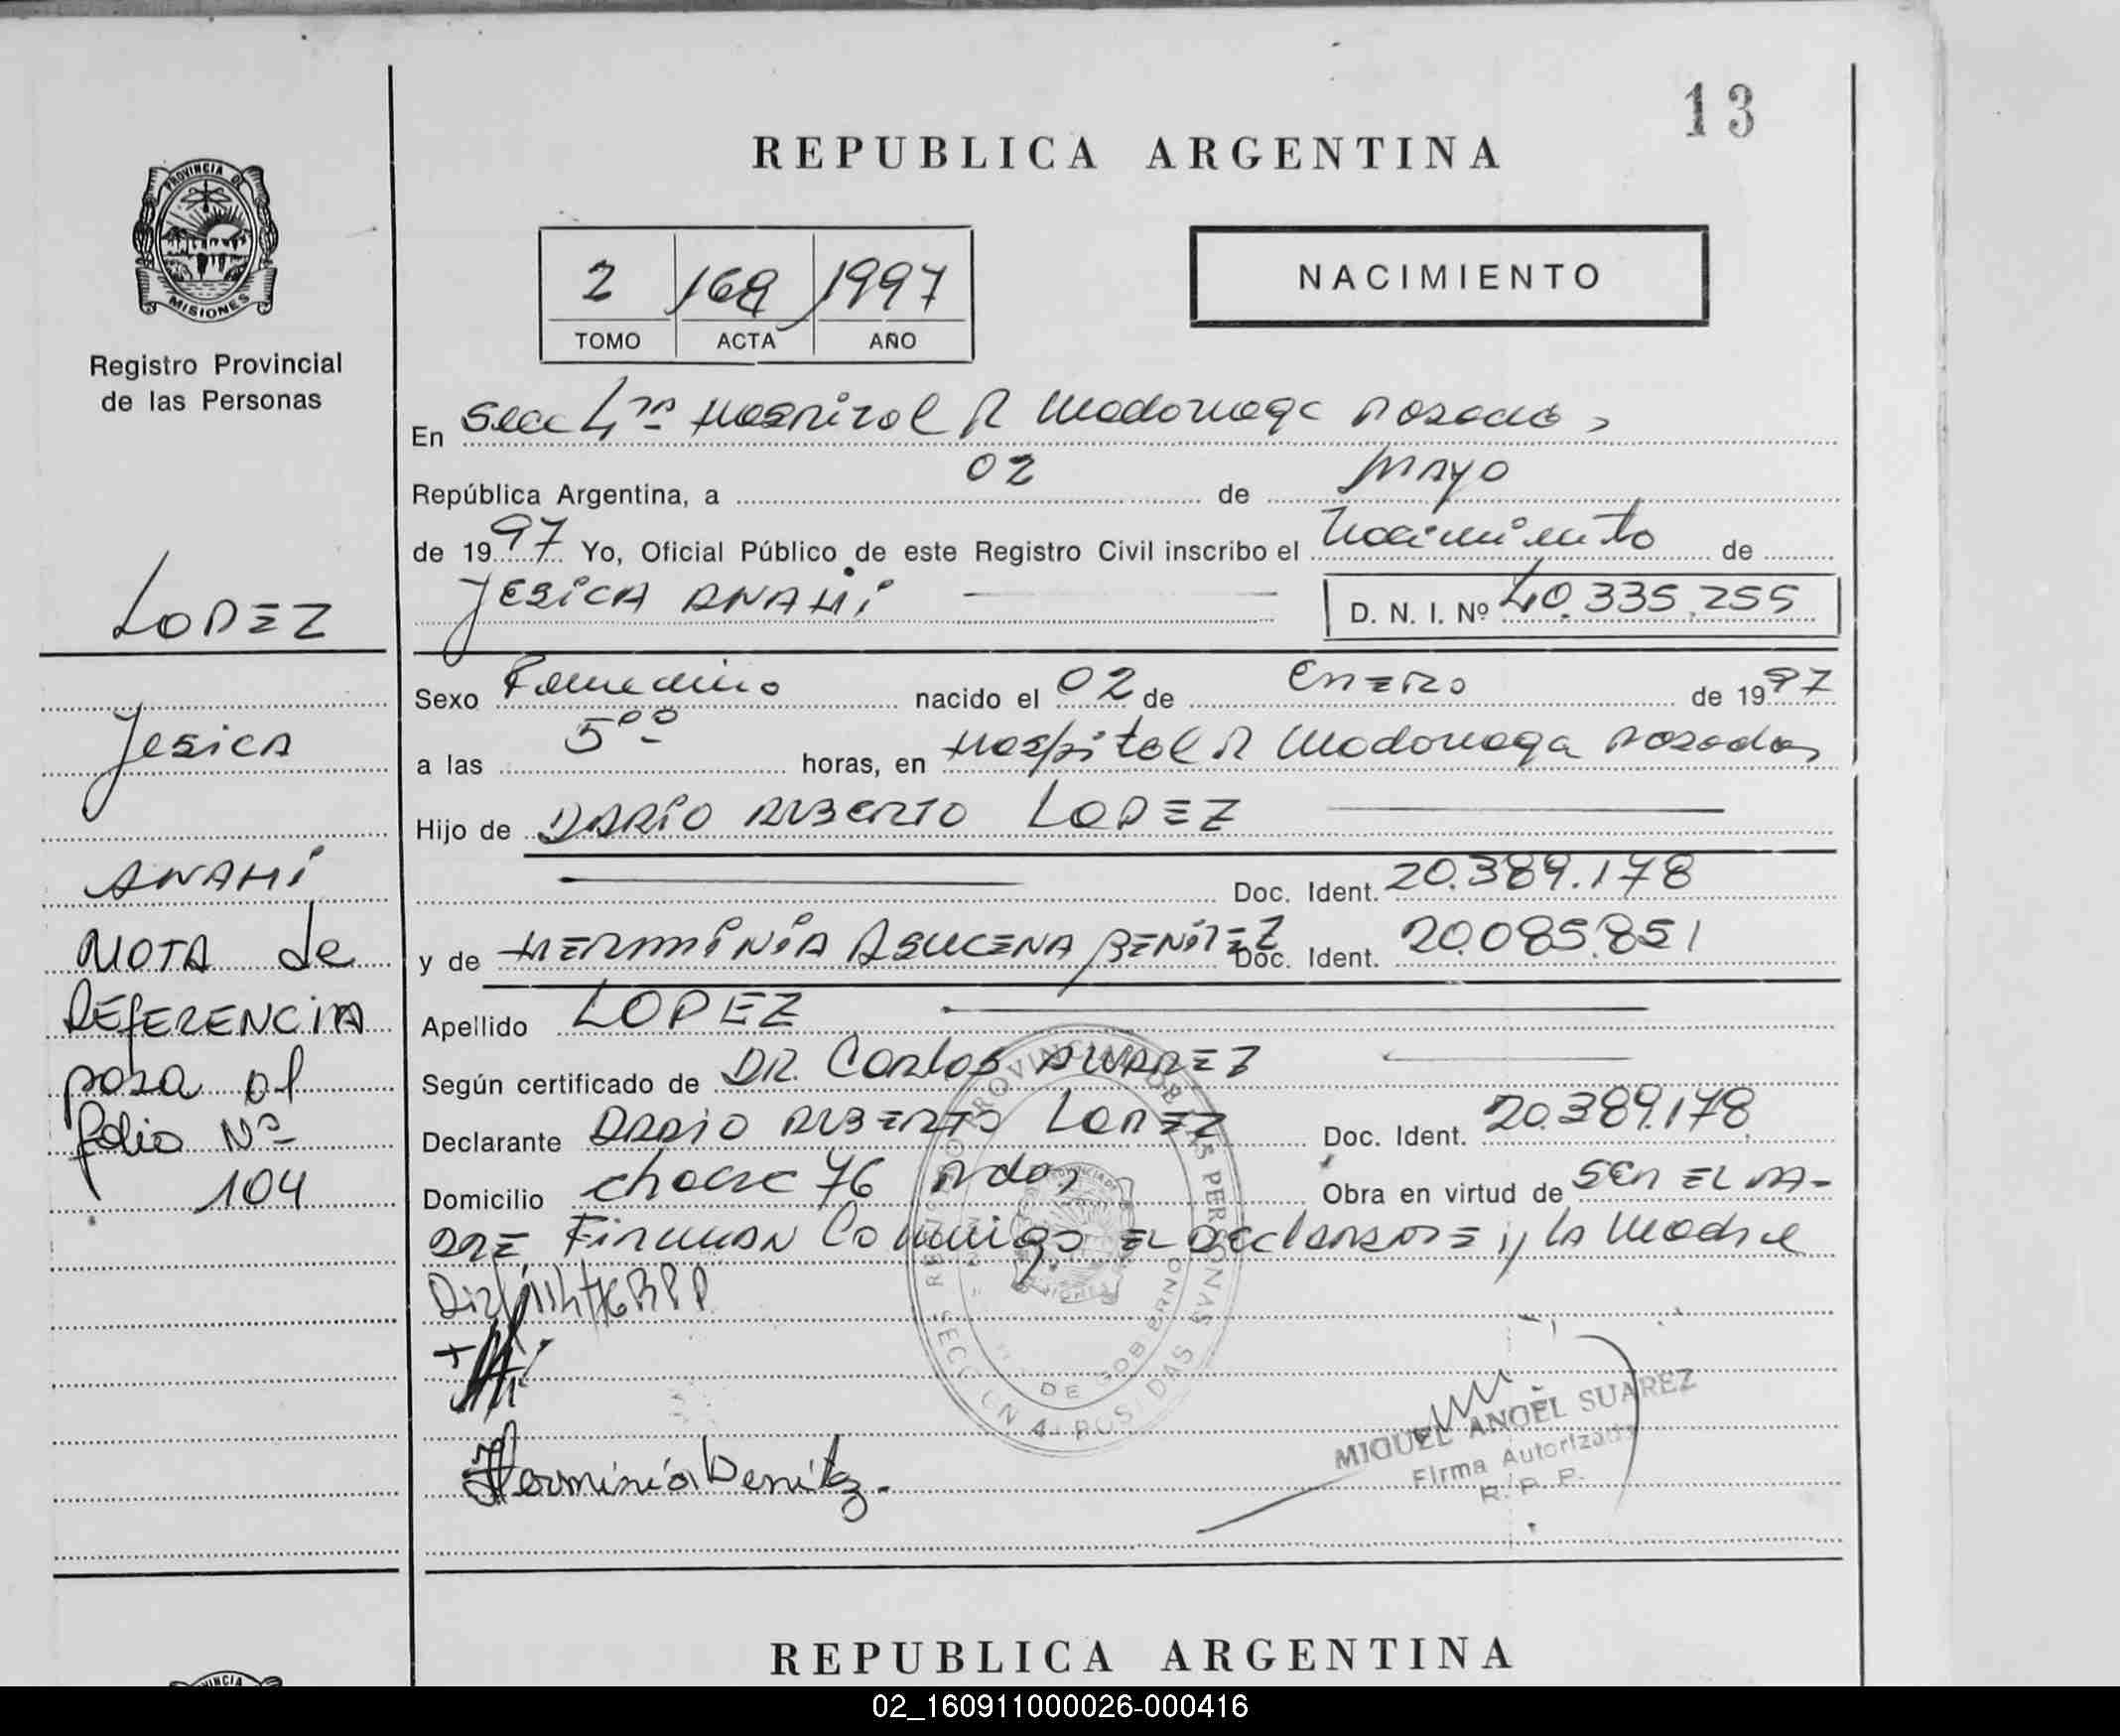 13
REPUBLICA ARGENTINA
PROVINCIA DE
MISIONES
Registro Provincial
de las Personas
2 169 1997
TOMO ACTA AÑO
NACIMIENTO
En Secc 4ta Hospital R Madariaga Posadas,
República Argentina, a 02 de Mayo
de 1997 Yo, Oficial Público de este Registro Civil inscribo el Nacimiento de
JESICA ANAHI D. N. I. Nº 40.335.255
LOPEZ
Jesica
ANAHI
NOTA de
REFERENCIA
pasa al
folio Nº
104
Sexo Femenino nacido el 02 de Enero de 1997
a las 5:00 horas, en Hospital R Madariaga Posadas
Hijo de DARIO ALBERTO LOPEZ
Doc. Ident. 20.389.178
y de HERMINIA ASUCENA BENITEZ Doc. Ident. 20.085.851
Apellido LOPEZ
Según certificado de DR. Carlos ALVAREZ
Declarante DARIO ALBERTO LOPEZ Doc. Ident. 20.389.178
Domicilio chacra 76 Pdas Obra en virtud de SER EL PA-
DRE Firman Conmigo EL Declarante y la Madre
Herminia Benitez.
REGISTRO PROVINCIAL DE LAS PERSONAS
SECCION 4 POSADAS
MIGUEL ANGEL SUAREZ
Firma Autorizada
R. P. P.
REPUBLICA ARGENTINA
02_160911000026-000416